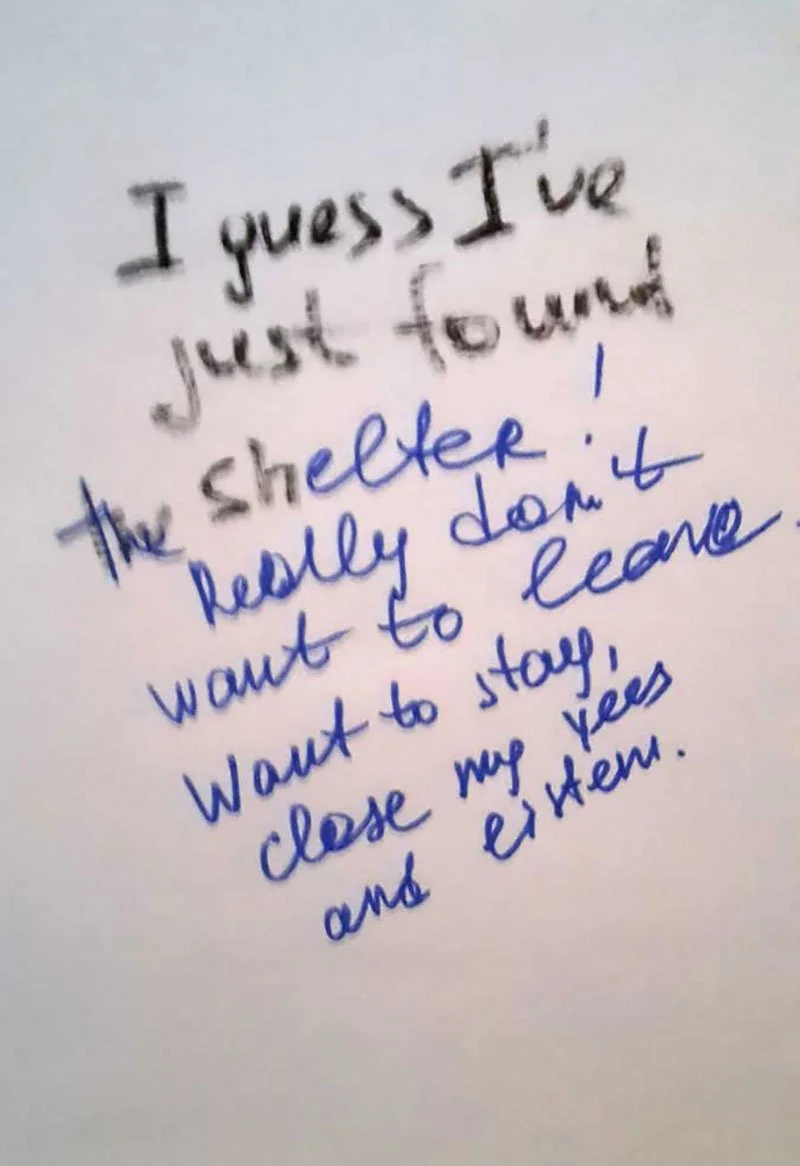 I guess I've
just found
the shelter!
Really don't
want to leave.
Want to stay,
close my yees
and listen.